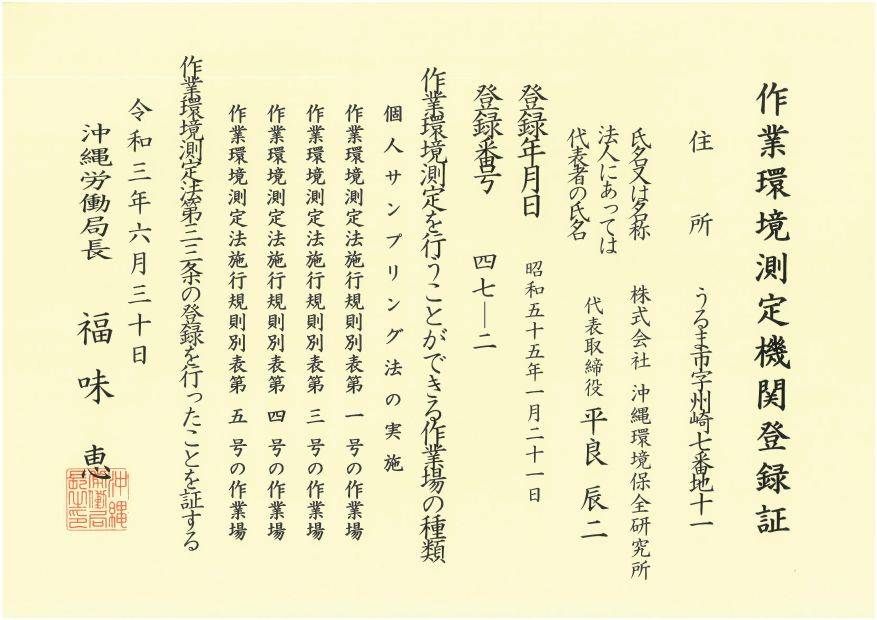 作業環境測定機関登録証
住所 うるま市字州崎七番地十一
氏名又は名称 株式会社 沖縄環境保全研究所
法人にあっては
代表者の氏名 代表取締役 平良 辰二
登録年月日 昭和五十五年一月二十一日
登録番号 四七―二
作業環境測定を行うことができる作業場の種類
個人サンプリング法の実施
作業環境測定法施行規則別表第 一 号の作業場
作業環境測定法施行規則別表第 三 号の作業場
作業環境測定法施行規則別表第 四 号の作業場
作業環境測定法施行規則別表第 五 号の作業場
作業環境測定法第三三条の登録を行ったことを証する
令和三年六月三十日
沖縄労働局長 福味 恵
沖縄
労働局
長之印